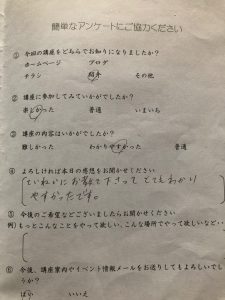 簡単なアンケートにご協力ください
① 今回の講座をどちらでお知りになりましたか?
ホームページ ブログ
チラシ 紹介 その他
② 講座に参加してみていかがでしたか?
楽しかった 普通 いまいち
③ 講座の内容はいかがでしたか?
難しかった わかりやすかった 普通
④ よろしければ本日の感想をお聞かせください
ていねいにお教え下さって とてもわかり
やすかったです。
⑤ 今後のご希望などございましたらお聞かせください
例)もっとこんなことをやって欲しい、こんな場所でやって欲しいなど・・
⑥ 今後、講座案内やイベント情報メールをお送りしてもよろしいでし
ょうか?
はい いいえ